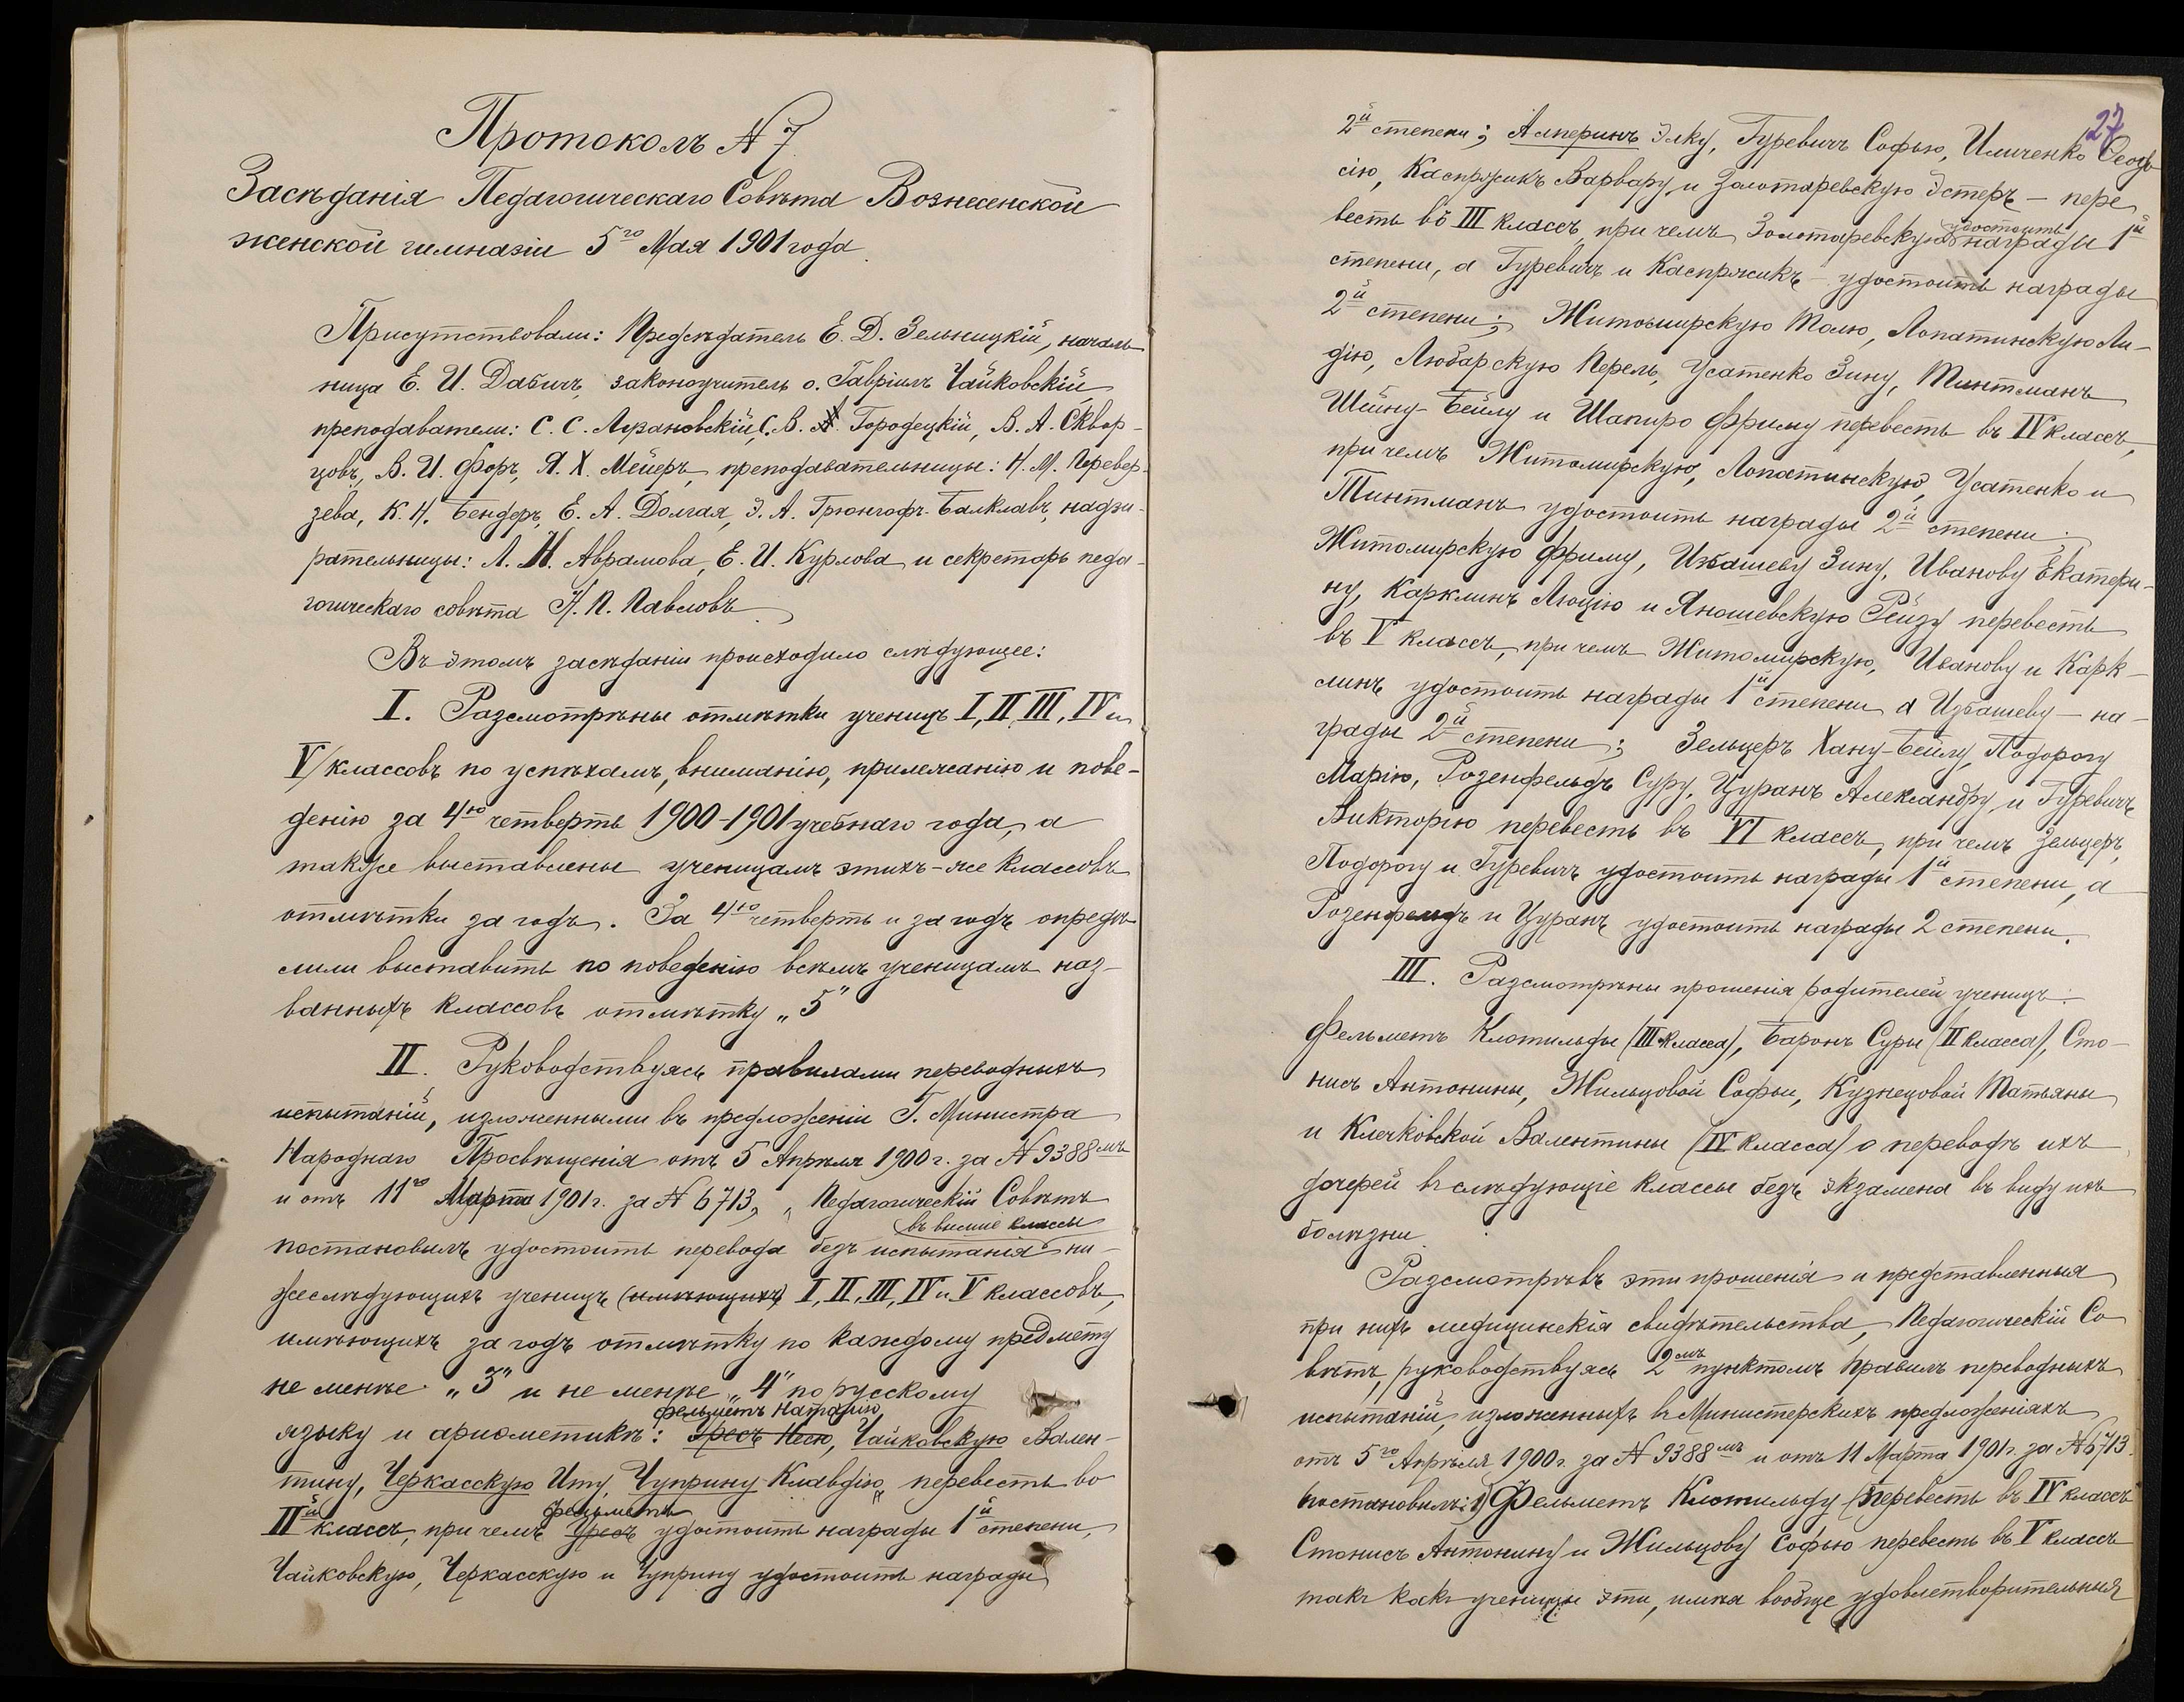 Протоколъ № 7
Засѣданія Педагогическаго Совѣта Вознесенской
женской гимназіи 5го Мая 1901 года.
Присутствовали: Предсѣдатель Е. Д. Зельницкій, началь-
ница Е. И. Дабичъ, законоучитель о. Гавріилъ Чайковскій,
преподаватели: С. С. Лузановскій, С. В. Городецкій, В. А. Сквор-
цовъ, В. И. Форъ, Я. Х. Мейеръ, преподавательницы: Н. М. Перевер-
зева, К. Н. Бендеръ, Е. А. Долгая, Э. А. Грюнгофъ-Балклавъ, надзи-
рательницы: Л. Н. Аврамова, Е. И. Курлова и секретарь педа-
гогическаго совѣта Н. П. Павловъ.
Въ этомъ засѣданіи происходило слѣдующее:
I. Разсмотрѣны отмѣтки ученицъ I, II, III, IV и
V классовъ по успѣхамъ, вниманію, прилежанію и пове-
денію за 4ю четверть 1900-1901 учебнаго года, а
также выставлены ученицамъ этихъ-же классовъ
отмѣтки за годъ. За 4ю четверть и за годъ опредѣ-
лили выставить по поведенію всѣмъ ученицамъ наз-
ванныхъ классовъ отмѣтку „5"
II. Руководствуясь правилами переводныхъ
испытаній, изложенными въ предложеніи Г. Министра
Народнаго Просвѣщенія отъ 5 Апрѣля 1900 г. за № 9388мъ
и отъ 11го Марта 1901 г. за № 6713, Педагогическій Совѣтъ
въ высшіе классы
постановилъ удостоить перевода безъ испытанія ни-
жеслѣдующихъ ученицъ (имѣющихъ) I, II, III, IV и V классовъ,
имѣющихъ за годъ отмѣтку по каждому предмету
не менѣе „3" и не менѣе „4" по русскому
Фельметъ Наталію
языку и ариѳметикѣ: Чайковскую Вален-
тину, Черкасскую Иту, Чуприну Клавдію, перевесть во
Фельметъ
IIй классъ, при чемъ удостоить награды 1й степени,
Чайковскую, Черкасскую и Чуприну удостоить награды
27
2й степени; Алперинъ Элку, Гуревичъ Софью, Ильченко Ѳеодо-
сію, Каспржикъ Варвару и Золотаревскую Эстеръ — пере
удостоить
весть въ III классъ, при чемъ Золотаревскую награды 1й
степени, а Гуревичъ и Каспржикъ — удостоить награды
2й степени; Житомирскую Малю, Лопатинскую Ли-
дію, Любарскую Перель, Усатенко Зину, Тинтманъ
Шейну-Бейлу и Шапиро Фриму перевесть въ IV классъ,
при чемъ Житомирскую, Лопатинскую, Усатенко и
Тинтманъ удостоить награды 2й степени;
Житомирскую Фриму, Избашеву Зину, Иванову Екатери-
ну, Карклинъ Люцію и Яношевскую Рейзу перевесть
въ V классъ, при чемъ Житомирскую, Иванову и Карк-
линъ удостоить награды 1й степени а Избашеву — на-
грады 2й степени; Зельцеръ Хану-Бейлу, Подорогу
Марію, Розенфельдъ Суру, Цуранъ Александру и Гуревичъ
Викторію перевесть въ VI классъ, при чемъ Зельцеръ,
Подорогу и Гуревичъ удостоить награды 1й степени, а
Розенфельдъ и Цуранъ удостоить награды 2 степени.
III. Разсмотрѣны прошенія родителей ученицъ:
Фельметъ Клотильды (III класса), Баронъ Суры (II класса), Сто-
нисъ Антонины, Жильцовой Софьи, Кузнецовой Татьяны
и Клечковской Валентины (IV класса) о переводѣ ихъ
дочерей въ слѣдующіе классы безъ экзамена въ виду ихъ
болѣзни.
Разсмотрѣвъ эти прошенія и представленныя
при нихъ медицинскія свидѣтельства, Педагогическій Со
вѣтъ, руководствуясь 2мъ пунктомъ правилъ переводныхъ
испытаній, изложенныхъ въ Министерскихъ предложеніяхъ
отъ 5го Апрѣля 1900 г. за № 9388мъ и отъ 11 Марта 1901 г. за № 6713.
постановилъ: 1) Фельметъ Клотильду перевесть въ IV классъ
Стонисъ Антонину и Жильцову Софью перевесть въ V классъ
такъ какъ ученицы эти, имѣя вообще удовлетворительныя